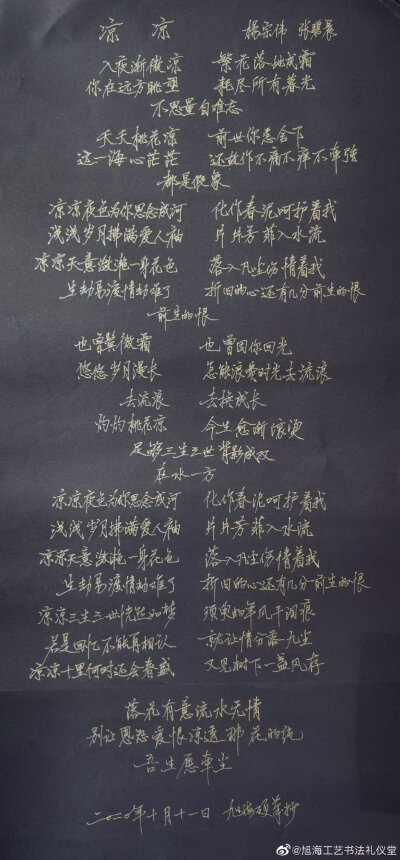 凉凉 杨宗伟 张碧晨
入夜渐微凉 繁花落地成霜
你在远方眺望 耗尽所有暮光
不思量自难忘
夭夭桃花凉 前世你怎舍下
这一海心茫茫 还故作不痛不痒不牵强
都是假象
凉凉夜色为你思念成河 化作春泥呵护着我
浅浅岁月拂满爱人袖 片片芳菲入水流
凉凉天意潋滟一身花色 落入凡尘伤情着我
生劫易渡情劫难了 折旧的心还有几分前生的恨
前生的恨
也曾鬓微霜 也曾因你回光
悠悠岁月漫长 怎能浪费时光去流浪
去流浪 去换成长
灼灼桃花凉 今生愈渐滚烫
足够三生三世背影成双
在水一方
凉凉夜色为你思念成河 化作春泥呵护着我
浅浅岁月拂满爱人袖 片片芳菲入水流
凉凉天意潋滟一身花色 落入凡尘伤情着我
生劫易渡情劫难了 折旧的心还有几分前生的恨
凉凉三生三世恍然如梦 须臾的年风干泪痕
若是回忆不能再相认 就让情分落九尘
凉凉十里何时还会春盛 又见树下一盏风存
落花有意流水无情
别让恩怨爱恨凉透那花的纯
吾生愿牵尘
二〇二〇年十月十一日 旭海
@旭海工艺书法礼仪堂